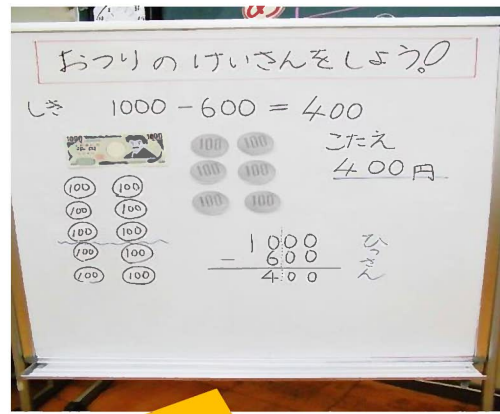 おつりのけいさんをしよう!
しき 1000-600=400
こたえ
400円
1000 1000
100 100
100 100
100 100
100 100
100 100
100 100
100 100
100 100
1000
-600
400
ひっさん